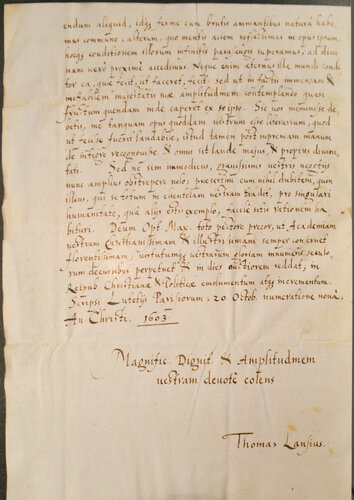 endum aliquid, idq́; ferme cum brutis animantibus naturâ habe,
mus commune, alterum, quo mentis aciem reflectimus in opus ipsum,
hocq́; conditionem illorum infinitis parasangis superamus, ad divi,
nam verò proximè accedimus. Neque enim æternus ille mundi condi,
tor ea, quæ fecit, ut faceret, fecit: sed ut in factis immensam &
ineffabilem majestatis suæ amplitudinem contemplando quasi
fructum quendam inde caperet ex seipso. Sic vos meminisse de
betis, me tanquam opus quoddam vestrum esse literarium, quod
ut fecisse fuerit laudabile, istud tamen post supremam manum
de integro recognovisse & omni sit laude majus & propius divini,
tati. Sed ne sim immodicus, gravissimis vestris negotiis
nunc amplius obstrepere nolo: præsertim cum nihil dubitem, quin
illius, qui se totum in clientelam vestram tradit, pro singulari
humanitate, quæ alijs estis exemplo, facile sitis rationem ha
bituri. Deum Opt. Max. toto pectore precor, ut Academiam
vestram Christianissimam & illustrissimam semper conservet
florentissimam, virtutumq́; vestrarum gloriam innumeris seculo,
rum decursibus perpetuet & in dies auctiorem reddat, in
Reipub Christianæ & Politicæ emolumentum atq́; incrementum.
Scripsi Lutetiæ Parisiorum, 20 Octob. numeratione novâ,
An Christi, 1603
Magnific. Dignit. & Amplitudinem
vestram devotè colens
Thomas Lansius.